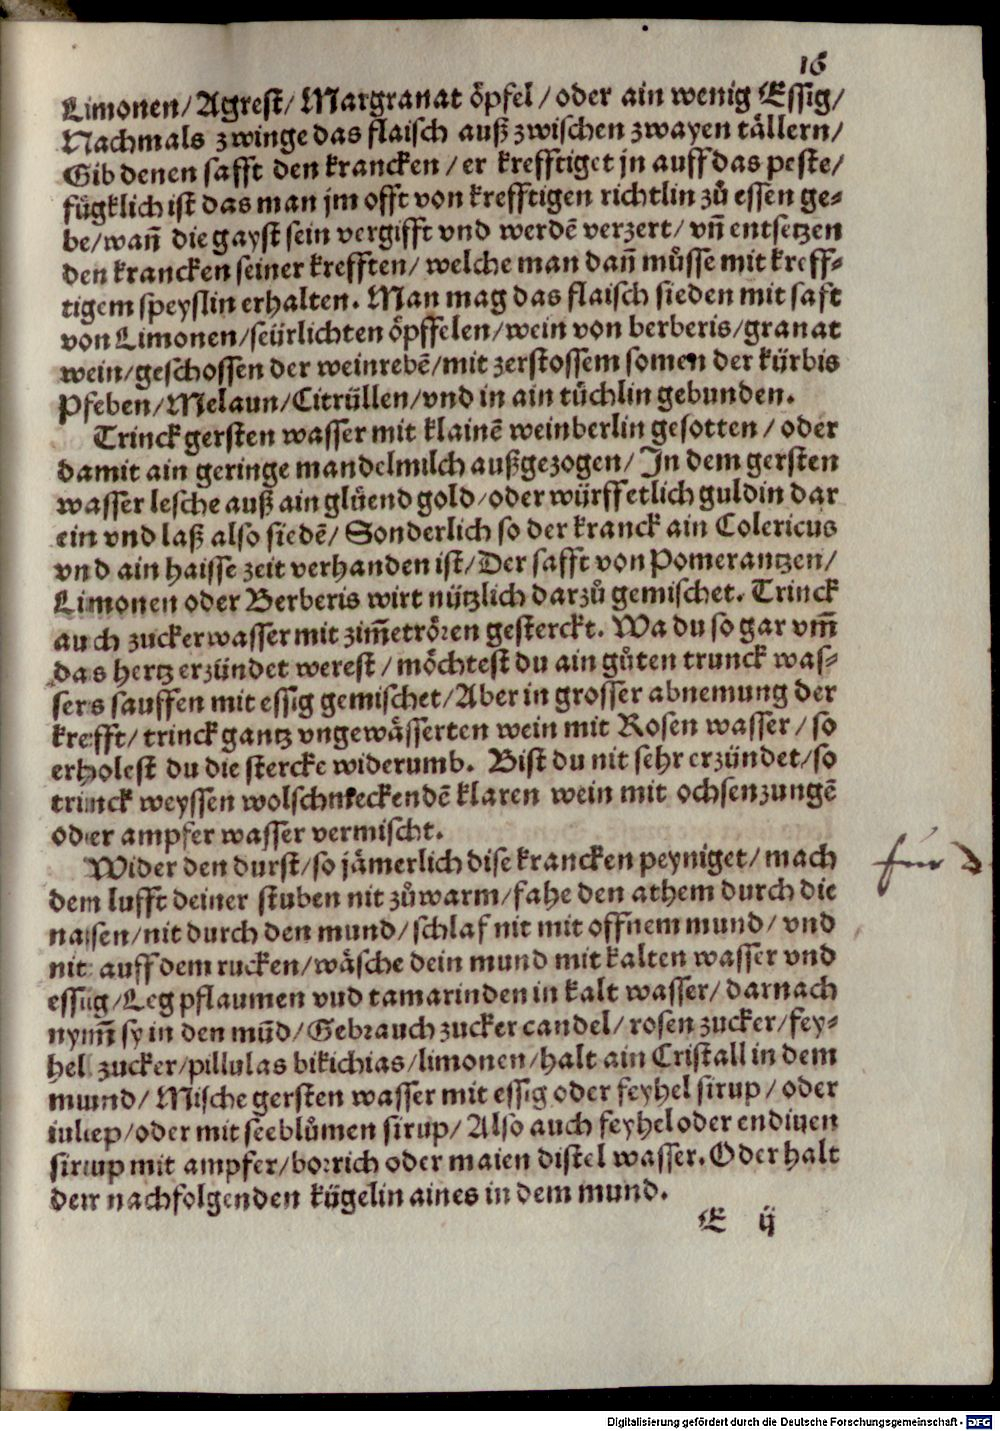 16
Limonen/ Agrest/ Margranat öpfel / oder ain wenig Essig/
Nachmals zwinge das flaisch auß zwischen zwayen tällern/
Gib denen safft den krancken / er krefftiget jn auff das peste/
fügklich ist das man jm offt von krefftigen richtlin zů essen ge-
be/wañ die gayst sein vergifft vnd werdē verzert/ vñ entsetzen
den krancken seiner krefften/ welche man dañ můsse mit kreff-
tigem speyslin erhalten. Man mag das flaisch sieden mit saft
von Limonen/seürlichten öpffelen/wein von berberis/granat
wein/geschossen der weinrebē/mit zerstossem somen der kürbis
Pfeben/Melaun/Citrüllen/vnd in ain tüchlin gebunden.
Trinck gersten wasser mit klainē weinberlin gesotten / oder
damit ain geringe mandelmilch außgezogen/ In dem gersten
wasser lesche auß ain glüend gold/oder würff etlich guldin dar
ein vnd laß also siedē/ Sonderlich so der kranck ain Colericus
vnd ain haisse zeit verhanden ist/Der safft von Pomerantzen/
Limonen oder Berberis wirt nützlich darzů gemischet. Trinck
auch zuckerwasser mit zim̄etrören gesterckt. Wa du so gar vm̄
das hertz erzündet werest / möchtest du ain gůten trunck was-
sers sauffen mit essig gemischet/Aber in grosser abnemung der
krefft/ trinck gantz vngewässerten wein mit Rosen wasser / so
erholest du die stercke widerumb. Bist du nit sehr erzündet/so
trinck weyssen wolschmeckendē klaren wein mit ochsenzungē
oder ampfer wasser vermischt.
Wider den durst/so jämerlich dise krancken peyniget/ mach
dem lufft deiner stuben nit zůwarm/fahe den athem durch die
nasen/nit durch den mund/schlaf nit mit offnem mund/ vnd
nit auff dem rucken/wäsche dein mund mit kalten wasser vnd
essig/Leg pflaumen vud tamarinden in kalt wasser/ darnach
nym̄ sy in den mūd/Gebrauch zucker candel/ rosen zucker/fey-
hel zucker/pillulas bikichias/limonen/halt ain Cristall in dem
mund/ Mische gersten wasser mit essig oder feyhel sirup/ oder
iulep/oder mit seeblůmen sirup/ Also auch feyhel oder endiuen
sirup mit ampfer/borrich oder maien distel wasser. Oder halt
der nachfolgenden kügelin aines in dem mund.
E ij
für
Digitalisierung gefördert durch die Deutsche Forschungsgemeinschaft - DFG